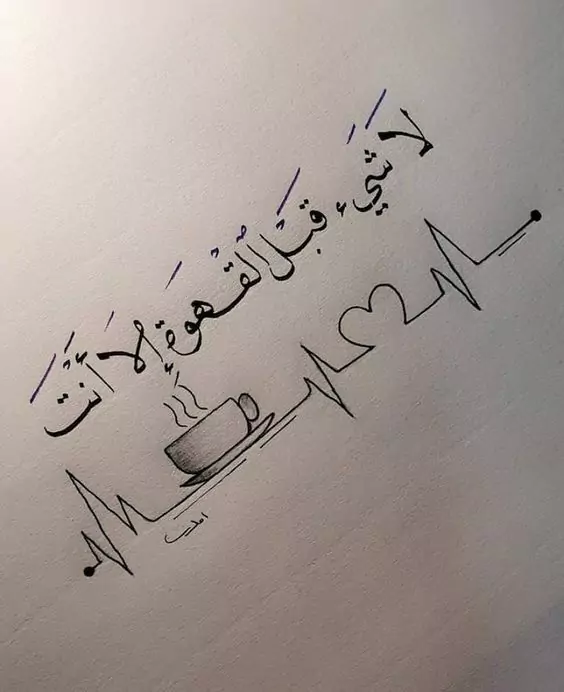 لَا شَيْء قَبْلَ الْقَهْوَةِ إِلَّا أَنْتَ